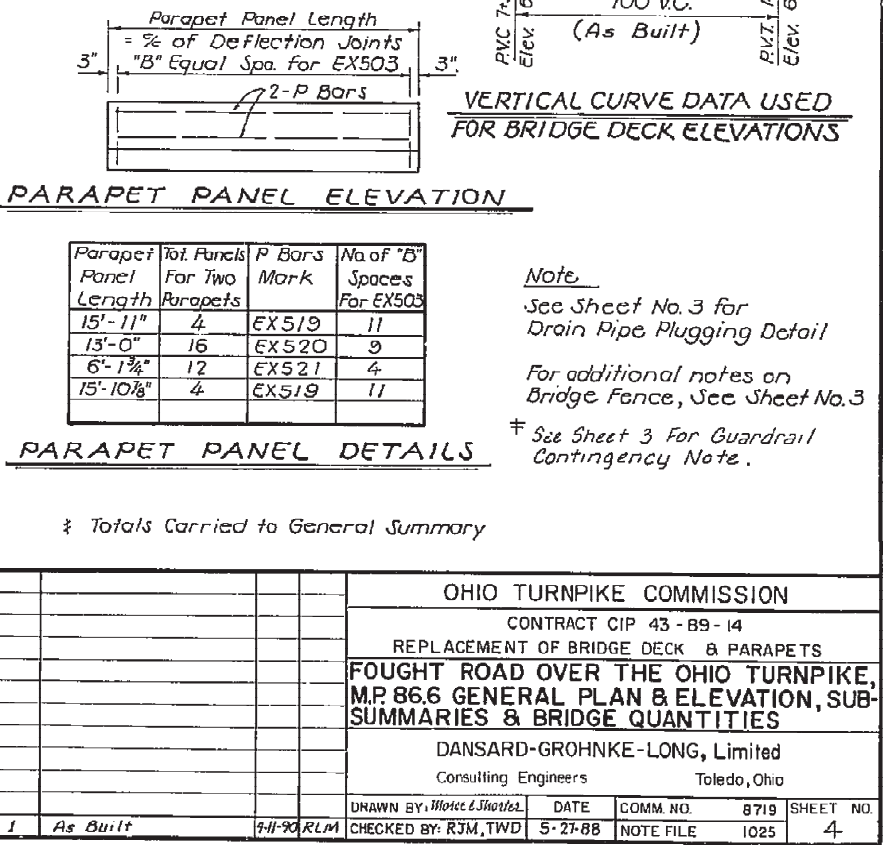 Parapet Panel Length
= ℄ of Deflection Joints
3" "B" Equal Spa. for EX503 3"
2-P Bars
PARAPET PANEL ELEVATION
100' V.C.
(As Built)
P.V.C. 7+
Elev. 6
P.V.T.
Elev. 6
VERTICAL CURVE DATA USED
FOR BRIDGE DECK ELEVATIONS
Parapet Tot. Panels P Bars No. of "B"
Panel For Two Mark Spaces
Length Parapets For EX503
15'-11" 4 EX519 11
13'-0" 16 EX520 9
6'-1¾" 12 EX521 4
15'-10⅞" 4 EX519 11
PARAPET PANEL DETAILS
Note
See Sheet No. 3 for
Drain Pipe Plugging Detail
For additional notes on
Bridge Fence, See Sheet No. 3
‡ See Sheet 3 For Guardrail
Contingency Note.
Totals Carried to General Summary
OHIO TURNPIKE COMMISSION
CONTRACT CIP 43-89-14
REPLACEMENT OF BRIDGE DECK & PARAPETS
FOUGHT ROAD OVER THE OHIO TURNPIKE,
M.P. 86.6 GENERAL PLAN & ELEVATION, SUB-
SUMMARIES & BRIDGE QUANTITIES
DANSARD-GROHNKE-LONG, Limited
Consulting Engineers Toledo, Ohio
DRAWN BY: DATE COMM. NO. 8719 SHEET NO.
1 As Built 9-11-90 RLM CHECKED BY: RJM, TWD 5-27-88 NOTE FILE 1025 4